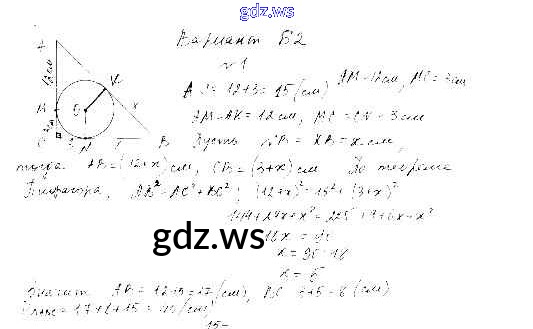 gdz.ws
Вариант Б2
№1
AC = 12+3 = 15 (см) AM = 12 см, MC = 3 см
AM = AK = 12 см, MC = CN = 3 см
Пусть NB = KB = x см,
тогда AB = (12+x) см, CB = (3+x) см По теореме
Пифагора, AB² = AC² + BC²; (12+x)² = 15² + (3+x)²
144+24x+x² = 225+9+6x+x²
18x = 90
x = 90:18
x = 5
gdz.ws
Значит AB = 12+5 = 17 (см), BC = 3+5 = 8 (см)
= 17+8+15 = 40 (см)
15=
A
12 см
K
M
O
x
C
3
N
B